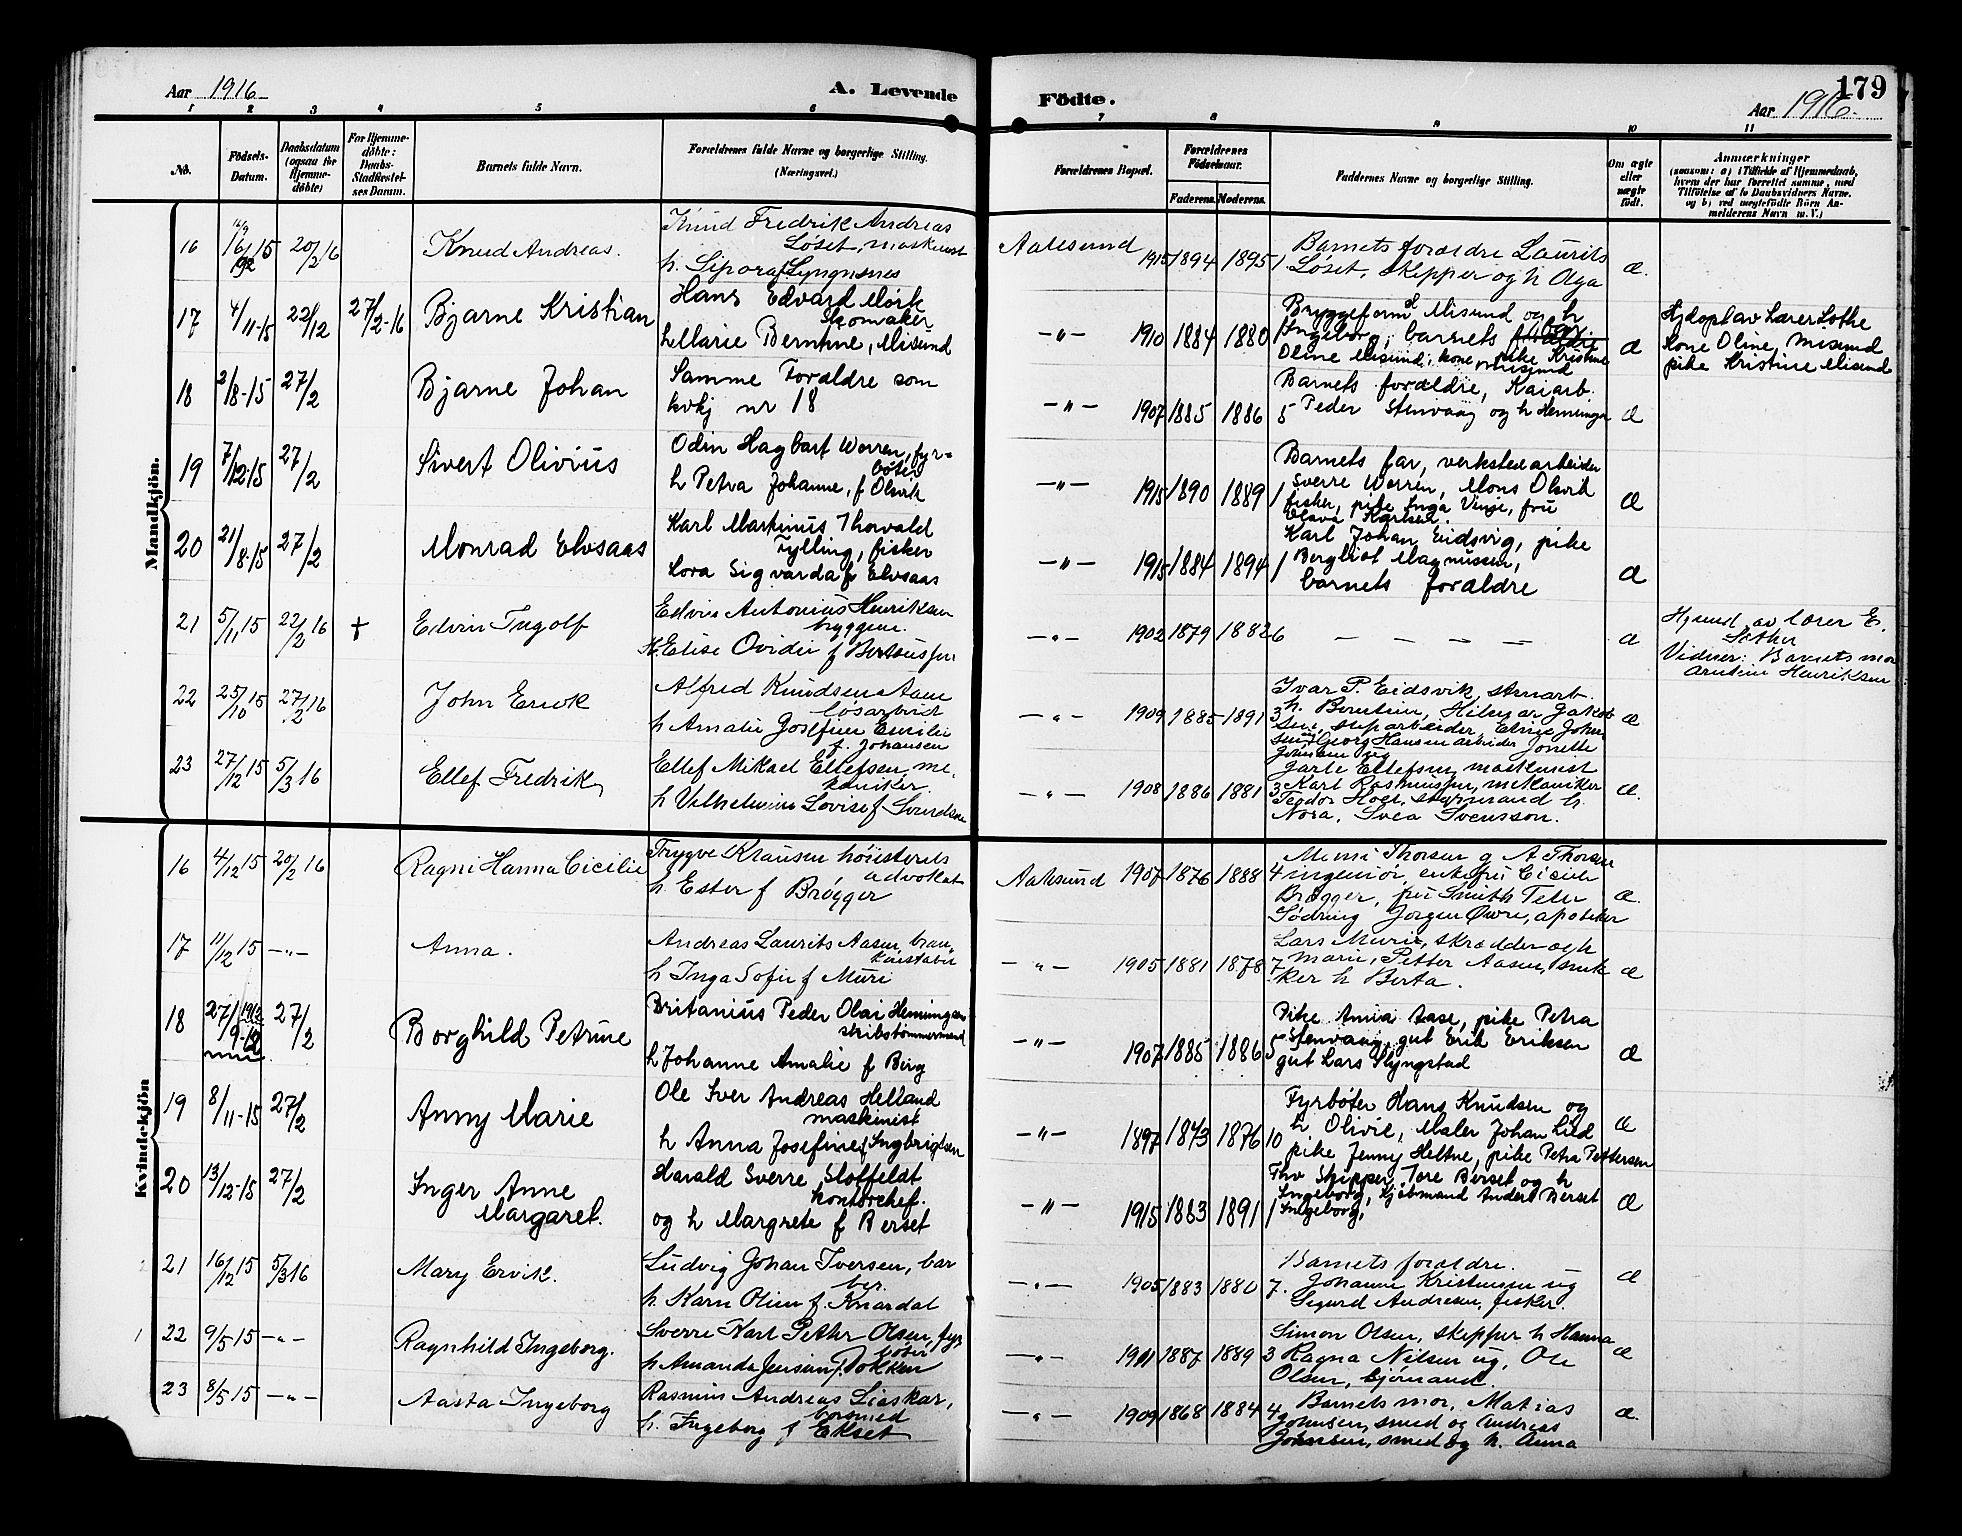 179
Aar 1916
A. Levende
Födte.
Aar 1916.
1 2 3 4 5 6 7 8 9 10 11
No.
Födsels-Datum.
Daabsdatum (ogsaa for Hjemme-döbte)
For Hjemme-döbte: Daabs-Stadfæstel-ses Datum.
Barnets fulde Navn.
Forældrenes fulde Navne og borgerlige Stilling.
(Næringsvei.)
Forældrenes Bopæl.
Forældrenes Födselsaar.
Faderens. Moderens.
Faddernes Navne og borgerlige Stilling.
Om ægte eller uægte født.
Anmærkninger
(saasom: a) i Tilfælde af Hjemmedaab,
hvem der har forrettet samme, med
Tilföielse af to Daabsvidners Navne,
og b) ved uægtefödte Börn An-
melderens Navn m. V.)
Mandkjön.
16 20/2 16 Knud Andreas.
Knud Fredrik Andreas
Løset, maskinist
h. Sipora f Lyngsnes
Aalesund 1915 1894 1895 1
Barnets forældre Laurits
Løset, skipper og h Olga
Æ.
17 4/11-15 22/12 27/2-16 Bjarne Kristian
Hans Edvard Mork
skomaker
h Marie Berntine, Misund
-"- 1910 1884 1880
Bryggeform Misund og h
Ingeborg, barnets
Oline Misund, kone, pike Kristine
Misund
Æ
Hjdopl av Lærer Lothe
Kone Oline, Misund
pike Kristine Misund
18 2/8-15 27/2 Bjarne Johan
Samme Forældre som
kvkj nr 18
-"- 1907 1885 1886 5
Barnets forældre, Kaiarb.
Peder Stenvaag og h Henninga
Æ
19 7/12-15 27/2 Sivert Olivius
Odin Hagbart Worren, fyr-
bøter
h Petra Johanne, f Olsvik
-"- 1915 1890 1889 1
Barnets far, verkstedarbeider
Sverre Worren, Mons Olsvik
fisker, pike Inga Vinje, fru
Olava Karlsen.
Æ
20 21/8-15 27/2 Monrad Elvsaas
Karl Martinus Thorvald
Fylling, fisker
Lora Sigvarda f Elvsaas
-"- 1915 1884 1894 1
Karl Johan Eidsvig, pike
Bergliot Magnussen,
barnets forældre
Æ
21 5/11 15 22/2 16 + Edvin Ingolf
Edvin Antonius Henriksen
bryggem.
h. Elise Ovidie f
-"- 1902 1879 1882 6
— — — — —
Æ
av lærer E.
Vidner: Barnets mor
Henriksen
22 25/10 15 27/2 16 John Ervik
Alfred Knudsen Aam
løsarbeid
h Amalie Josefine Emilie
f. Johansen
-"- 1909 1885 1891 3
Ivar P. Eidsvik, stenarb.
h. Berntine, Hilmar Jakob
Georg Hansen arbeider Jonette
Æ
23 27/12 15 5/3 16 Ellef Fredrik
Ellef Mikael Ellefsen, me-
kaniker.
h Vilhelmine Lovise f Svendsen
-"- 1908 1886 1881 3
Jarle Ellefsen, maskinist
Karl Rasmussen, mekaniker
Teodor Hoel, styrmand h.
Nora, Svea Svensson.
Æ.
Kvindekjön
16 4/12 15 20/2 16 Ragni Hanna Cicilie
Trygve Klausen høiesterets
advokat
h. Ester f Brøgger
Aalesund 1907 1876 1888 4
Mimi Thorsen g A Thorsen
ingeniör, enkefru Cicilie
Brøgger, fru Smith Peter
Södring Jørgen Øwre, apoteker
Æ.
17 11/12 15 -"- Anna.
Andreas Laurits Aasen, bran-
konstabel
h Inga Sofie f Muri
-"- 1905 1881 1878 7
Lars Murie, skrædder og h
Marie, Petter Aasen, snek
ker h Berta.
Æ
18 27/2 Borghild Petrine
Britanius Peder Olai Henningsen
skibstømmermand
h Johanne Amalie f Berg
-"- 1907 1885 1886 5
Pike Anna Aase, pike Petra
Stenvaag, gut Erik Eriksen
gut Lars Slyngstad
Æ
19 8/11-15 27/2 Anny Marie
Ole Iver Andreas Helland
maskinist
h Anna Josefine f Ingbrigtsen
-"- 1897 1873 1876 10
Fyrbøter Hans Knudsen og
h Olivie, Maler Johan Lied
pike Jenny Heltne, pike Petra Pettersen
Æ
20 13/12-15 27/2 Inger Anne
Margaret.
Harald Sverre Stoffeldt
kontorchef.
og h Margrete f Berset
-"- 1915 1883 1891 1
Fhv Skipper Tore Berset og h
Ingeborg, kjøbmand Anders Berset
Ingeborg,
Æ
21 16/12 15 5/3 16 Mary Ervik.
Ludvig Johan Iversen, bar
ber.
h. Karn Oline f. Knardal
-"- 1905 1883 1880 7.
Barnets forældre.
Johanne Kristensen ug
Sigurd Andresen, fisker.
Æ
22 9/5 15 -"- Ragnhild Ingeborg.
Sverre Karl Petter Olsen, fyr
bøter
h Amanda Jensine f. Dokken
-"- 1911 1887 1889 3
Simon Olsen, skipper h Hanna
Ragna Nilsen ug, Ole
Olsen, sjømand.
Æ
23 8/5 15 -"- Aasta Ingeborg
Rasmus Andreas Liaskar,
h. Ingeborg f Ekset
-"- 1909 1868 1884 4
Barnets mor, Matias
Johnsen, smed og Andreas
Johnsen, smed og h. Anna
Æ.